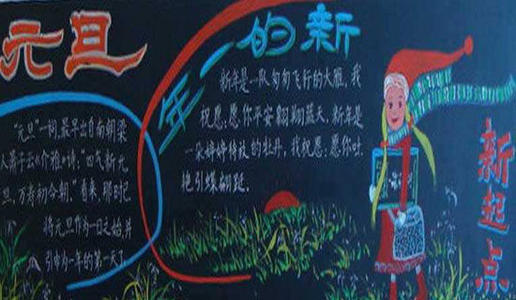 元旦
新的一年
"元旦"一词,最早出自南朝梁
人萧子云《介雅》诗:"四气新元
旦,万寿初今朝。"看来,那时已
将元旦作为一日之始,并
引申为一年的第一天了
新年是一队匆匆飞行的大雁,我
祝愿:愿你平安翱翔蓝天,新年是
一朵婷婷待放的牡丹,我祝愿:愿你吐
艳引蝶翩跹.
新起点